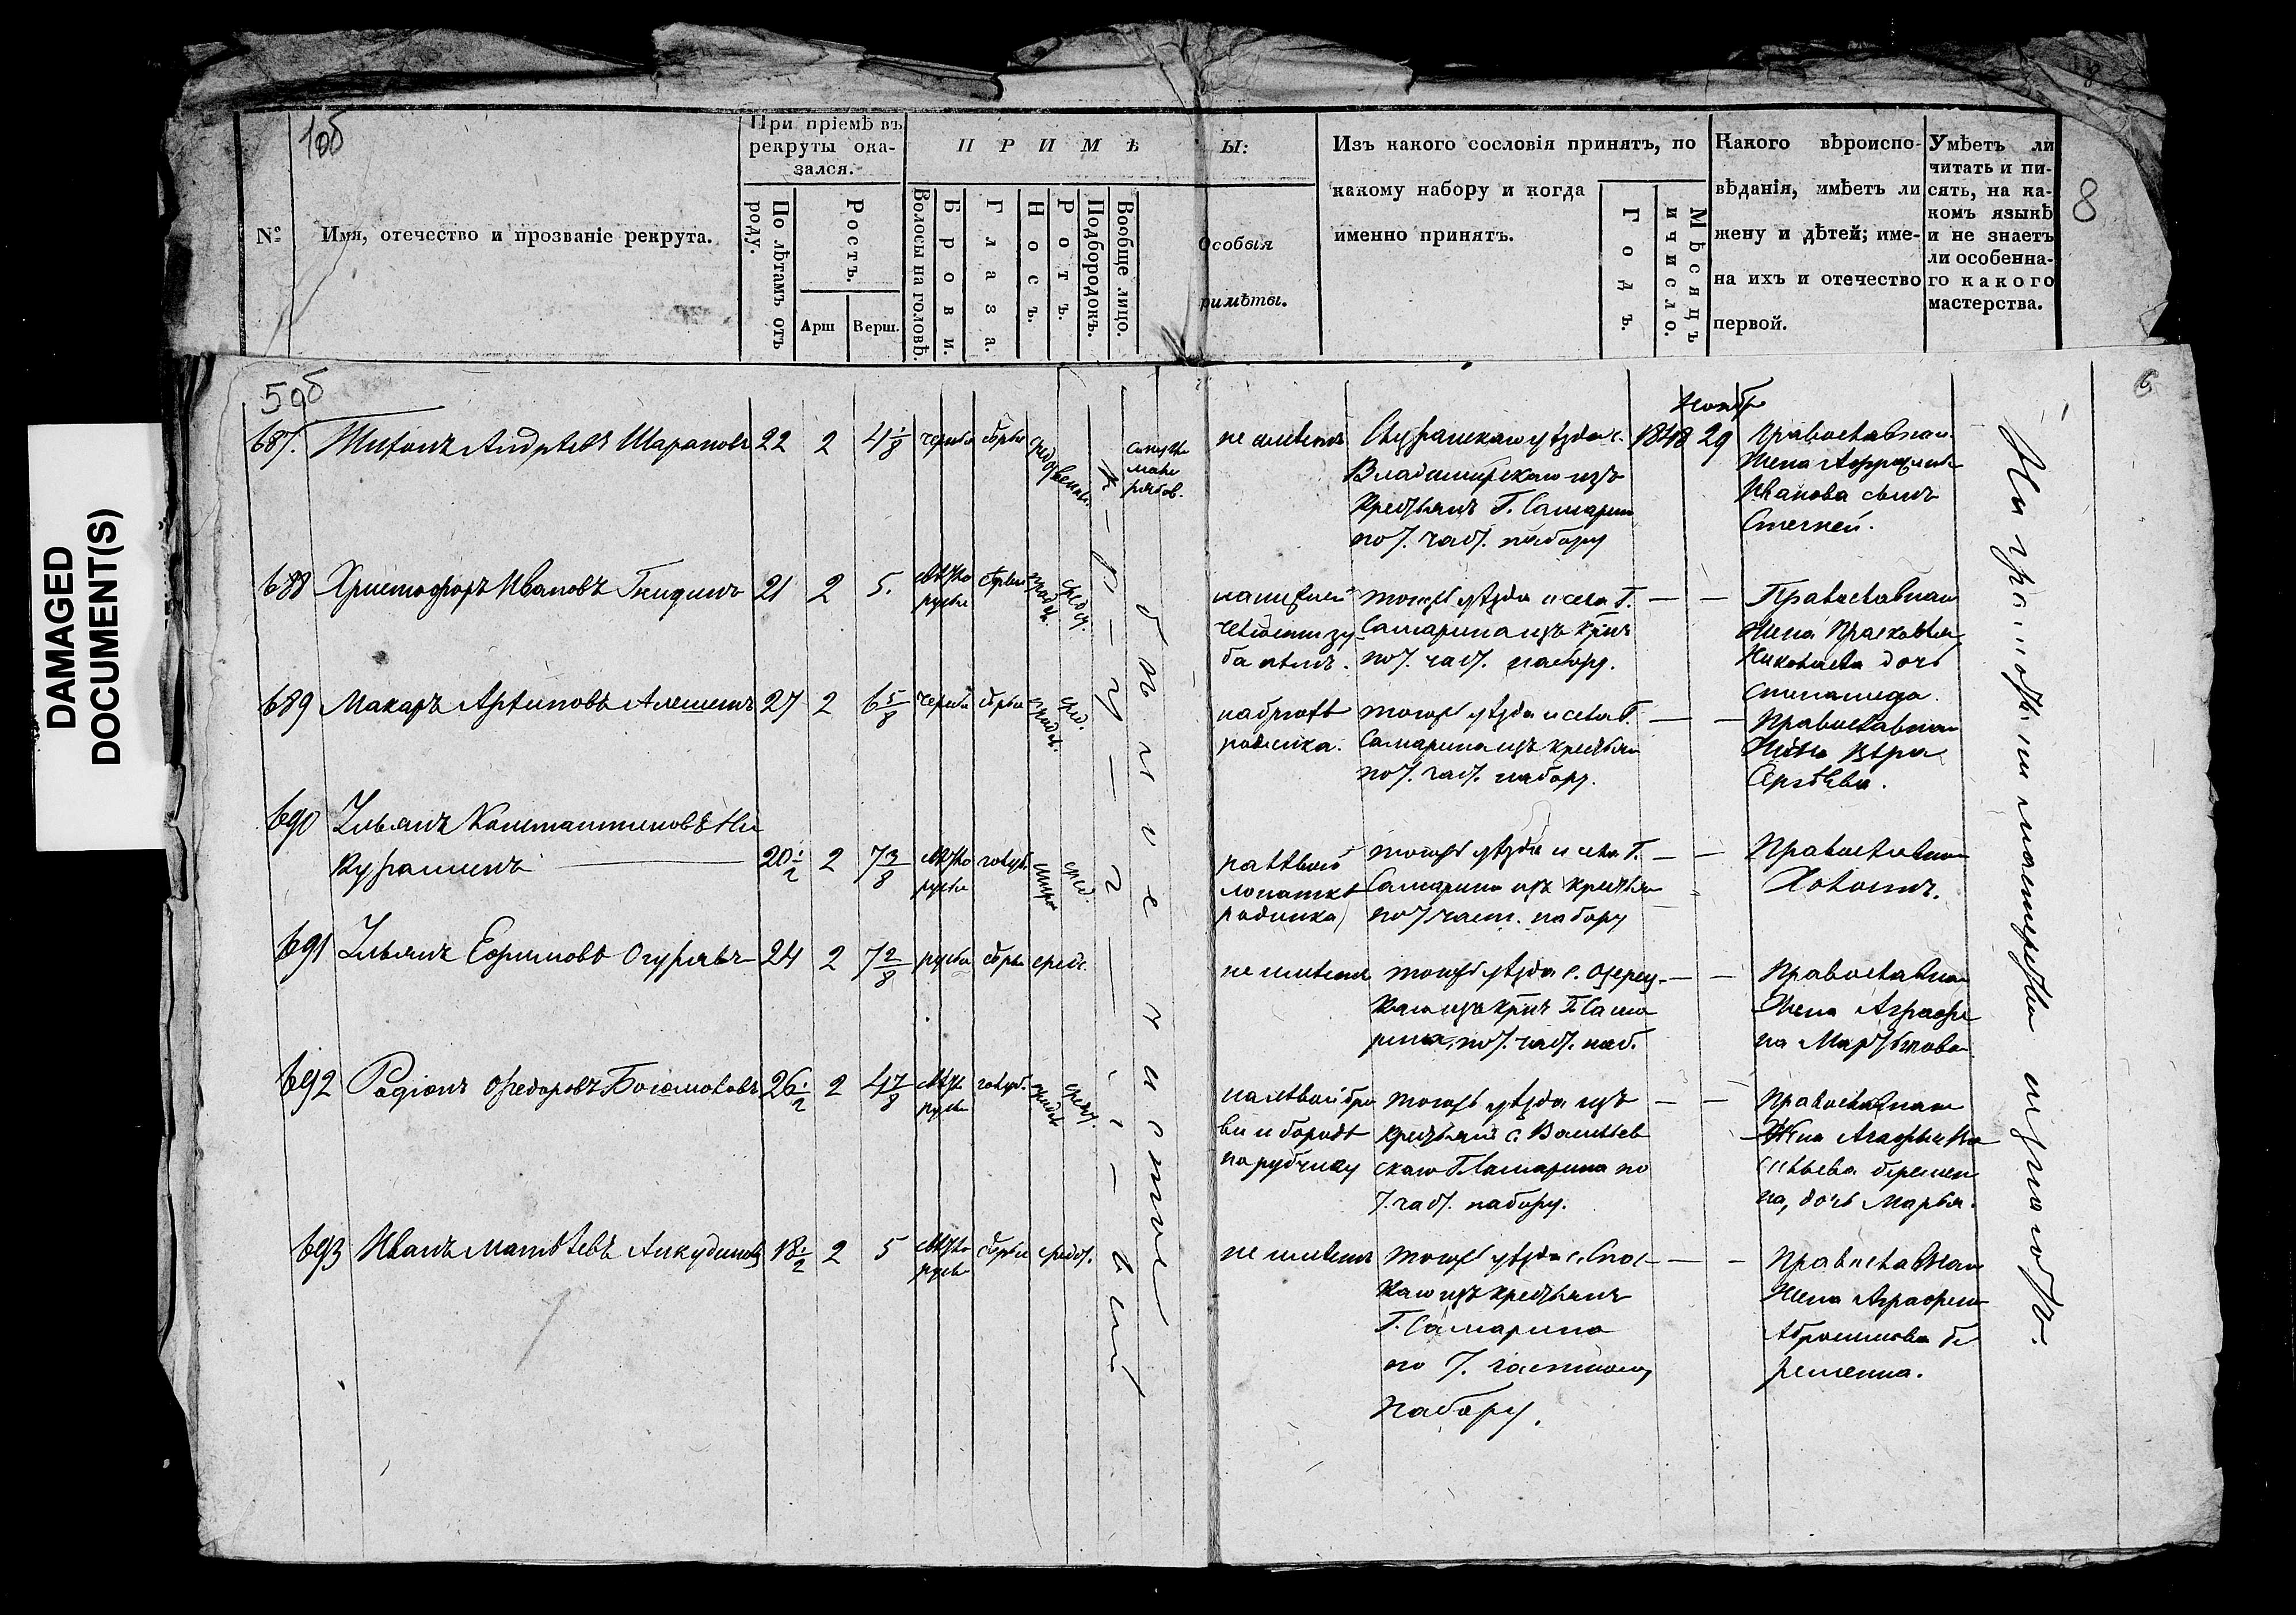 DAMAGED
DOCUMENT(S)
10б
8
№
Имя, отечество и прозваніе рекрута.
При пріемѣ въ
рекруты ока-
зался.
По лѣтамъ отъ
роду.
Ростъ.
Арш
Верш.
ПРИМѢ
Ы:
Волосы на головѣ.
Брови.
Глаза.
Носъ.
Ротъ.
Подбородокъ.
Вообще лицо.
Особыя
римѣты.
Изъ какого сословія принятъ, по
какому набору и когда
именно принятъ.
Годъ.
Мѣсяцъ
и число.
Какого вѣроиспо-
вѣданія, имѣетъ ли
жену и дѣтей; име-
на ихъ и отечество
первой.
Умѣетъ ли
читать и пи-
сять, на ка-
комъ языкѣ
и не знаетъ
ли особенна-
го какого
мастерства.
5об
6
687. Титонъ Андреевъ Шараповъ 22 2 4 1/8 черные сѣрые
не имѣетъ
Сызранскаго уѣзда с.
Владимирскаго изъ
крестьянъ Г. Самарина
по 7. част. набору
1848
Ноябр
29
Православнаго
Жена
Иванова сынъ
688 Христофоръ Ивановъ 21 2 5. свѣтло
русые сѣрые
тогожъ уѣзда и села Г.
Самарина изъ крнъ
по 7. част. набору.
— —
Православнаго
Жена Прасковья
Николаева дочь
Степанида.
689 Макаръ Архиповъ Алешинъ 27 2 6 5/8 черные сѣрые сред.
родинка.
тогожъ уѣзда и села Г.
Самарина изъ крестьян
по 7. част. набору.
— —
Православнаго
Жена Вѣра
Сергѣева.
690 Ульянъ Константиновъ Ни
курашинъ 20 1/2 2 7 3/8 свѣтло
русые голуб. сред.
на лѣвой
лопаткѣ
родинка
тогожъ уѣзда и села Г.
Самарина изъ крестьян
по 7 част. набору
— —
Православнаго
Холостъ.
691 Ульянъ Ефимовъ Огуревъ 24 2 7 2/8 русые сѣрые средс.
не имѣетъ
тогожъ уѣзда с. Озерец-
каго изъ крнъ Г. Сама
рина, по 7. част. наб.
— —
Православнаго
Жена Аграфе
на Мартынова
692 Родіонъ Федоровъ Богомоловъ 26 1/2 2 4 7/8 свѣтло
русые голуб. сред.
на лѣвой бро
ви и бородѣ
по рубчику
тогожъ уѣзда изъ
крестьянъ с. Васильев
скаго Г. Самарина по
7. част. набору.
— —
Православнаго
Жена Агафья Ва
сильева беремен
на, дочь Марья.
693 Иванъ Матвѣевъ Анкудиновъ 18 1/2 2 5 свѣтло
русые сѣрые средст.
не имѣетъ
тогожъ уѣзда с. Спас-
каго изъ крестьянъ
Г. Самарина
по 7. частному
набору.
— —
Православнаго
Жена Аграфена
Абрамова бе
ременна.
Ни грамоты ни мастерства не знаютъ.